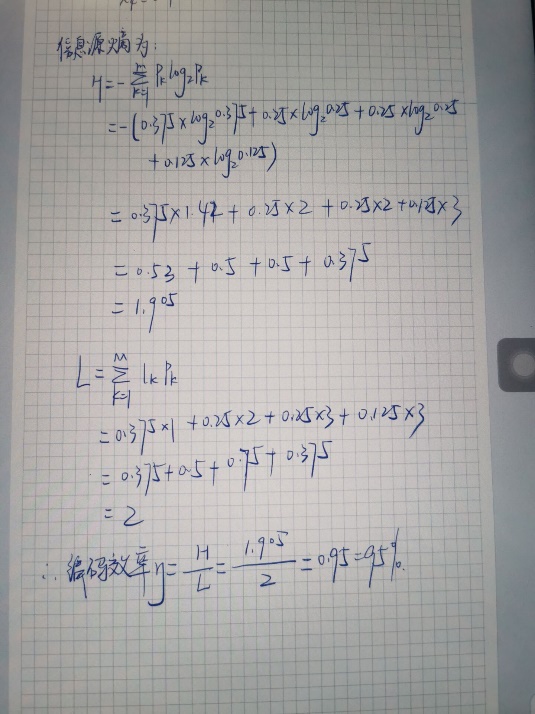 信息源熵为:
H=-∑_{k=1}^{m} Pk log₂Pk
=-(0.375×log₂0.375+0.25×log₂0.25+0.25×log₂0.25
+0.125×log₂0.125)
=0.375×1.42+0.25×2+0.25×2+0.125×3
=0.53+0.5+0.5+0.375
=1.905
L=∑_{k=1}^{m} lk Pk
=0.375×1+0.25×2+0.25×3+0.125×3
=0.375+0.5+0.75+0.375
=2
∴编码效率η=H/L=1.905/2=0.95=95%.